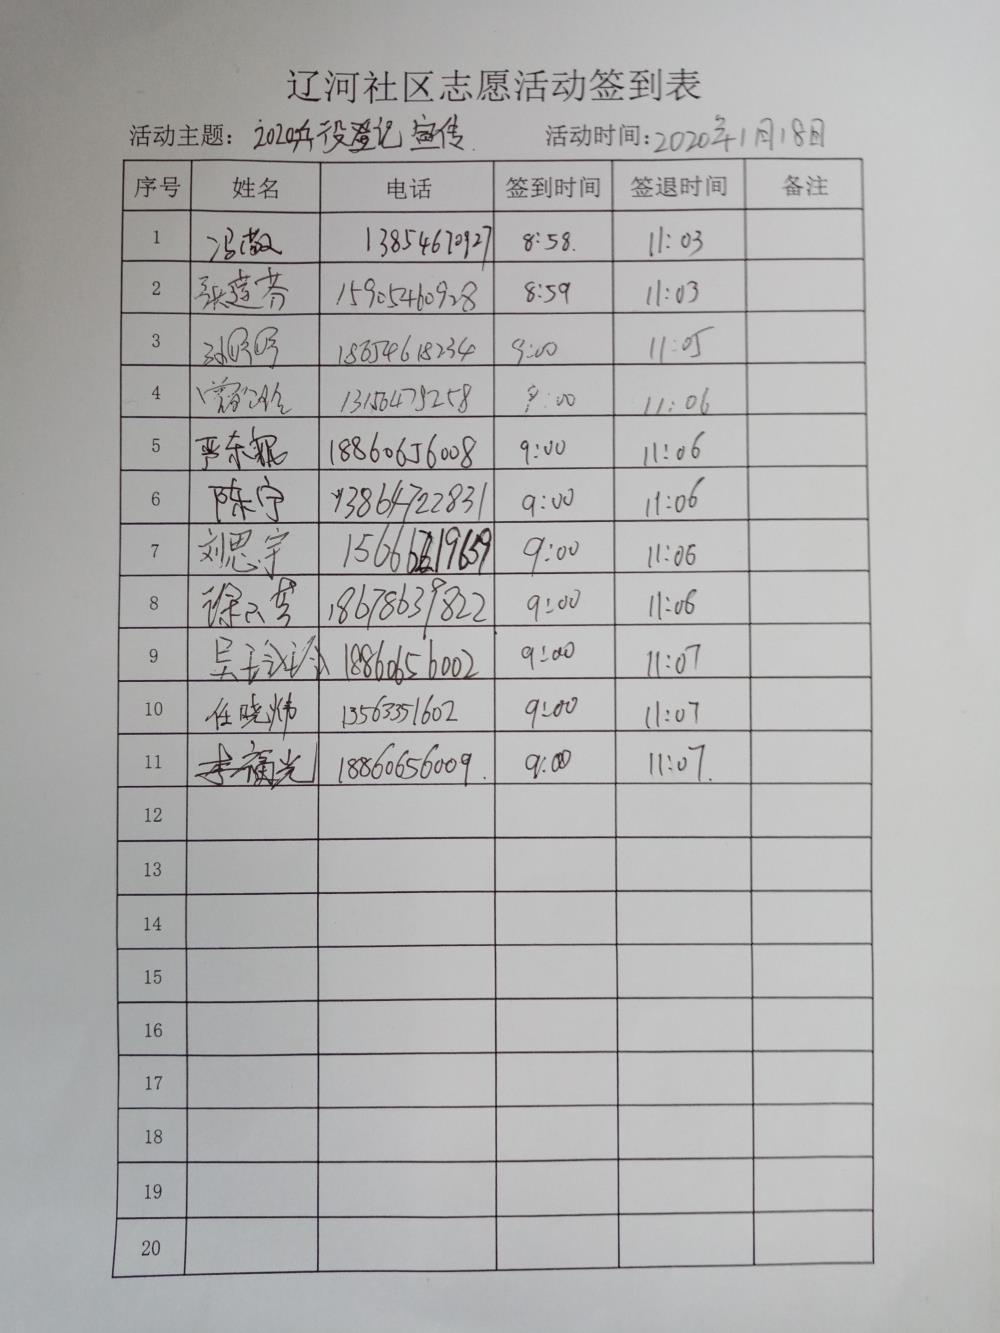 辽河社区志愿活动签到表
活动主题：2020兵役登记宣传 活动时间：2020年1月18日
序号 姓名 电话 签到时间 签退时间 备注
1 冯敬 13854670927 8:58. 11:03
2 15905460928 8:59 11:03
3 18654618234 9:00 11:05
4 9:00 11:06
5 严东 18860656008 9:00 11:06
6 陈宁 13864722831 9:00 11:06
7 刘思宇 9:00 11:06
8 徐 18678639822 9:00 11:06
9 吴 18860656002 9:00 11:07
10 任晓炜 13563351602 9:00 11:07
11 李福光 18860656009. 9:00 11:07.
12
13
14
15
16
17
18
19
20